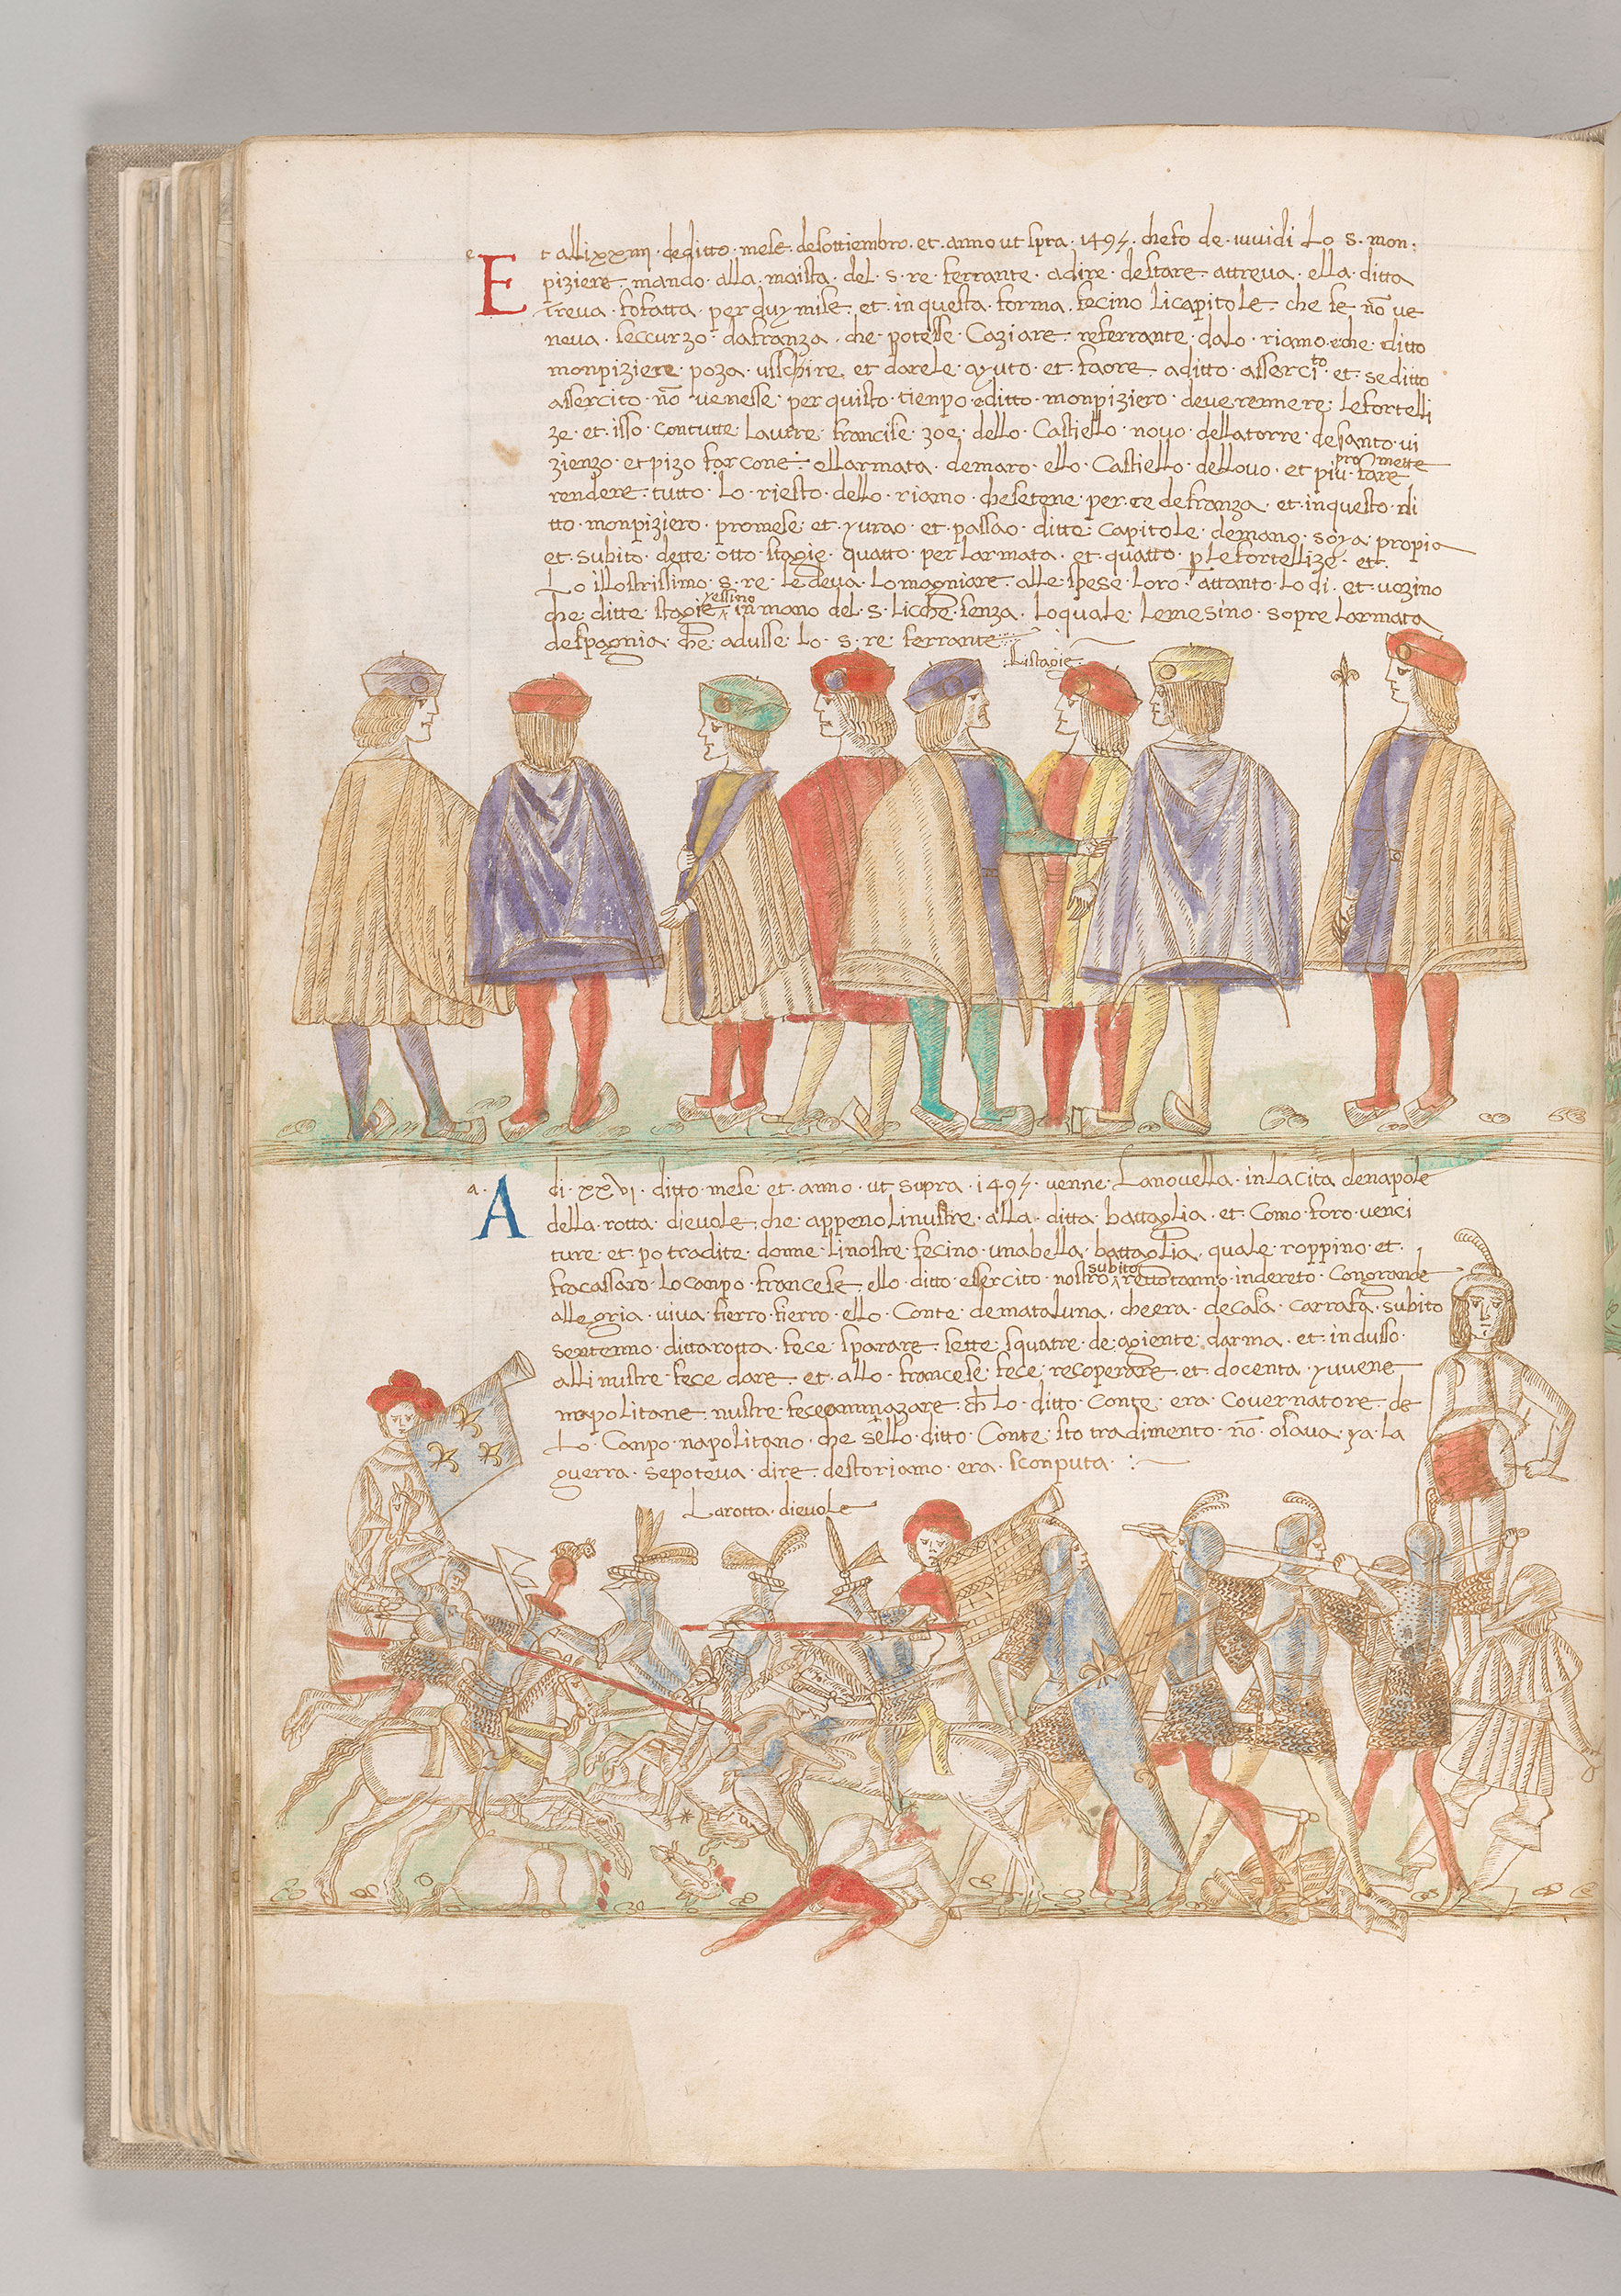 e.
Et alli xxiiii · de ditto · mese · desottiembro · et · anno ut spra · 1495 · che fo de · iuvidi Lo S · mon:
piziere · mando · alla · maista · del · s · re · ferrante · adire · de stare · attreva · ella · ditta
treva · fo fatta · per duy mise · et · in questa · forma · fecino li capitole · che se nõ ve
neva · seccurzo · da franza · che · potesse · Caziare · re ferrante · dalo · riamo · che ditto
monpiziere · poza · usschire et darele · ayuto · et · faore · aditto · asserci to · et · se ditto
assercito · nõ · venesse · per quisto · tienpo · editto · monpiziero · deve rennere · le fortelli
ze · et · isso · con tutte · Lautre · francise · zoe · dello · Castiello · novo · della torre · de santo · vi
zienzo · et pizo farcone · ellarmata · demaro · ello · Castiello · dellovo · et piu · promette fare
rendere · tutto · Lo · riesto · dello · riamo · che se tene · per · re de franza · et · in questo · di
tto · monpiziero · promese · et · yurao · et · passao · ditte · Capitole · demano · soya · propia
et · Subito · dette · otto · stagie · quatto · per Larmata · et · quatto · p le fortellize · et ·
Lo illostrissimo · s · re · le deva · Lo magniare · alle · spese · Loro · attanto · Lo di · et · vozino
che · ditte · stagie · yessino in mano del · S · Licche · senza · Lo quale · Le mesino · sopre Larmata
de spagnia · che · adusse · Lo · s · re · ferrante
: Li stagie :
a.
A di · xxvi · ditto · mese · et · anno · ut supra · 1495 · venne · La novella · in la cita de napole
della · rotta · dievole · che · appeno li nustre · alla · ditta · battaglia · et · Como · foro · venci
ture · et · po tradite · donne · li nostre · fecino · una bella · battaglia · quale · roppino · et ·
fracassaro · Lo canpo · francese · ello · ditto · essercito · nostro · subito rettornanno · indereto · Con grande
allegria · viva · fierro · fierro · ello · Conte · de mataluna · che era · de casa · carrafa · subito
sentenno · ditta rotta · fece · sparare · sette · squatre · de · giente · darma · et · in dusso ·
alli nustre · fece dare · et · allo · francese · fece · recoperare · et · docenta · yuvene
napolitane · nustre · fece ammazare · ch Lo · ditto · Conte · era · Covernatore · de
Lo · Canpo · napolitano · che sello · ditto · Conte · sto tradimento · nõ · osava · ya · la
guerra · se poteva · dire · de sto riamo · era · sconputa · :
La rotta · dievole